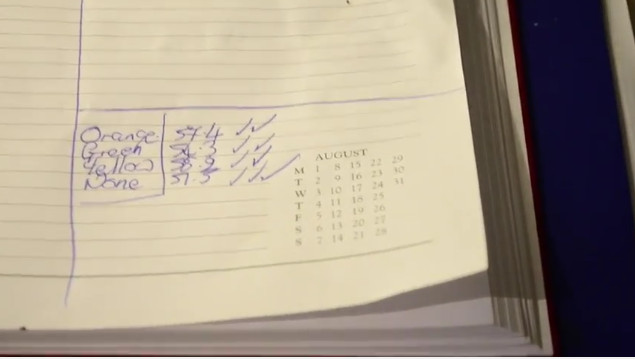 Orange 57.4
Green
Yellow
None 57.5
AUGUST
M 1 8 15 22 29
T 2 9 16 23 30
W 3 10 17 24 31
T 4 11 18 25
F 5 12 19 26
S 6 13 20 27
S 7 14 21 28